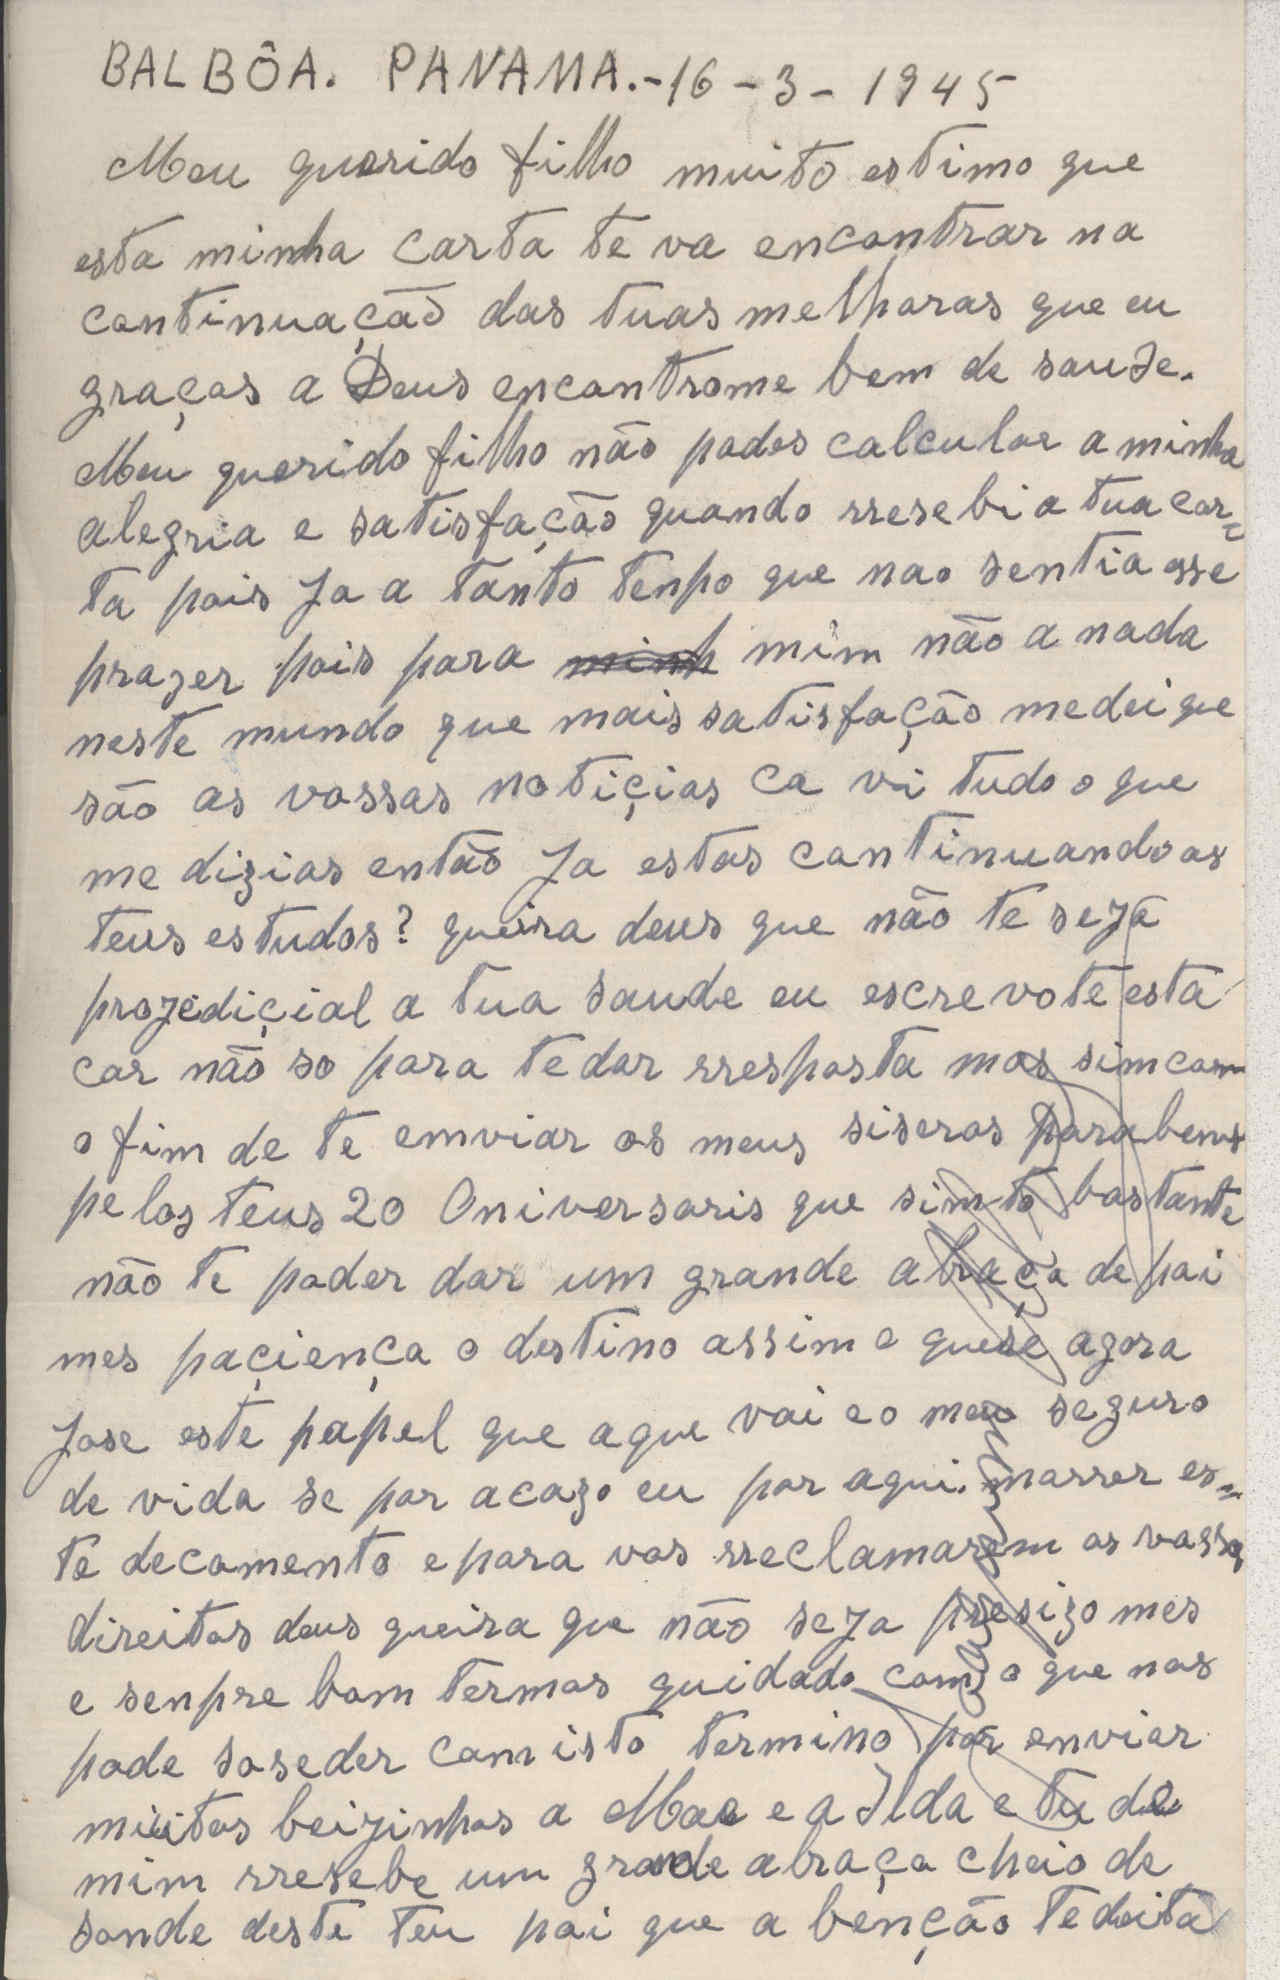 BALBÔA. PANAMA.-16-3-1945
Meu querido filho muito estimo que
esta minha carta te va encontrar na
continuação das tuas melharas que eu
graças a Deus encontrome bem de saude.
Meu querido filho não podes calcular a minha
alegria e satisfação quando rresebi a tua car=
ta pois Ja a tanto tenpo que nao sentia esse
prazer pois para minh mim não a nada
neste mundo que mais satisfação medei que
são as vossas notiçias ca vi tudo o que
me dizias então Ja estas continuando os
teus estudos? queira deus que não te seja
projediçial a tua saude eu escrevote esta
car não so para te dar rresposta mas sim com
o fim de te emviar os meus siseros parabens
pelos teus 20 Oniversaris que simto bastante
não te poder dar um grande abraço de pai
mes paçiença o destino assim o quese agora
Jose este papel que aque vai e o meu seguro
de vida se por acazo eu por aqui morrer es=
te decomento e para vos rreclamarem os vossos
direitos deus queira que não seja presizo mes
e senpre bom termos quidado com o que nos
pode soseder com isto termino por enviar
muitos beizinhos a Mae e a Ilda e tu de
mim rresebe um grande abraço cheio de
sonde deste teu pai que a benção te deita